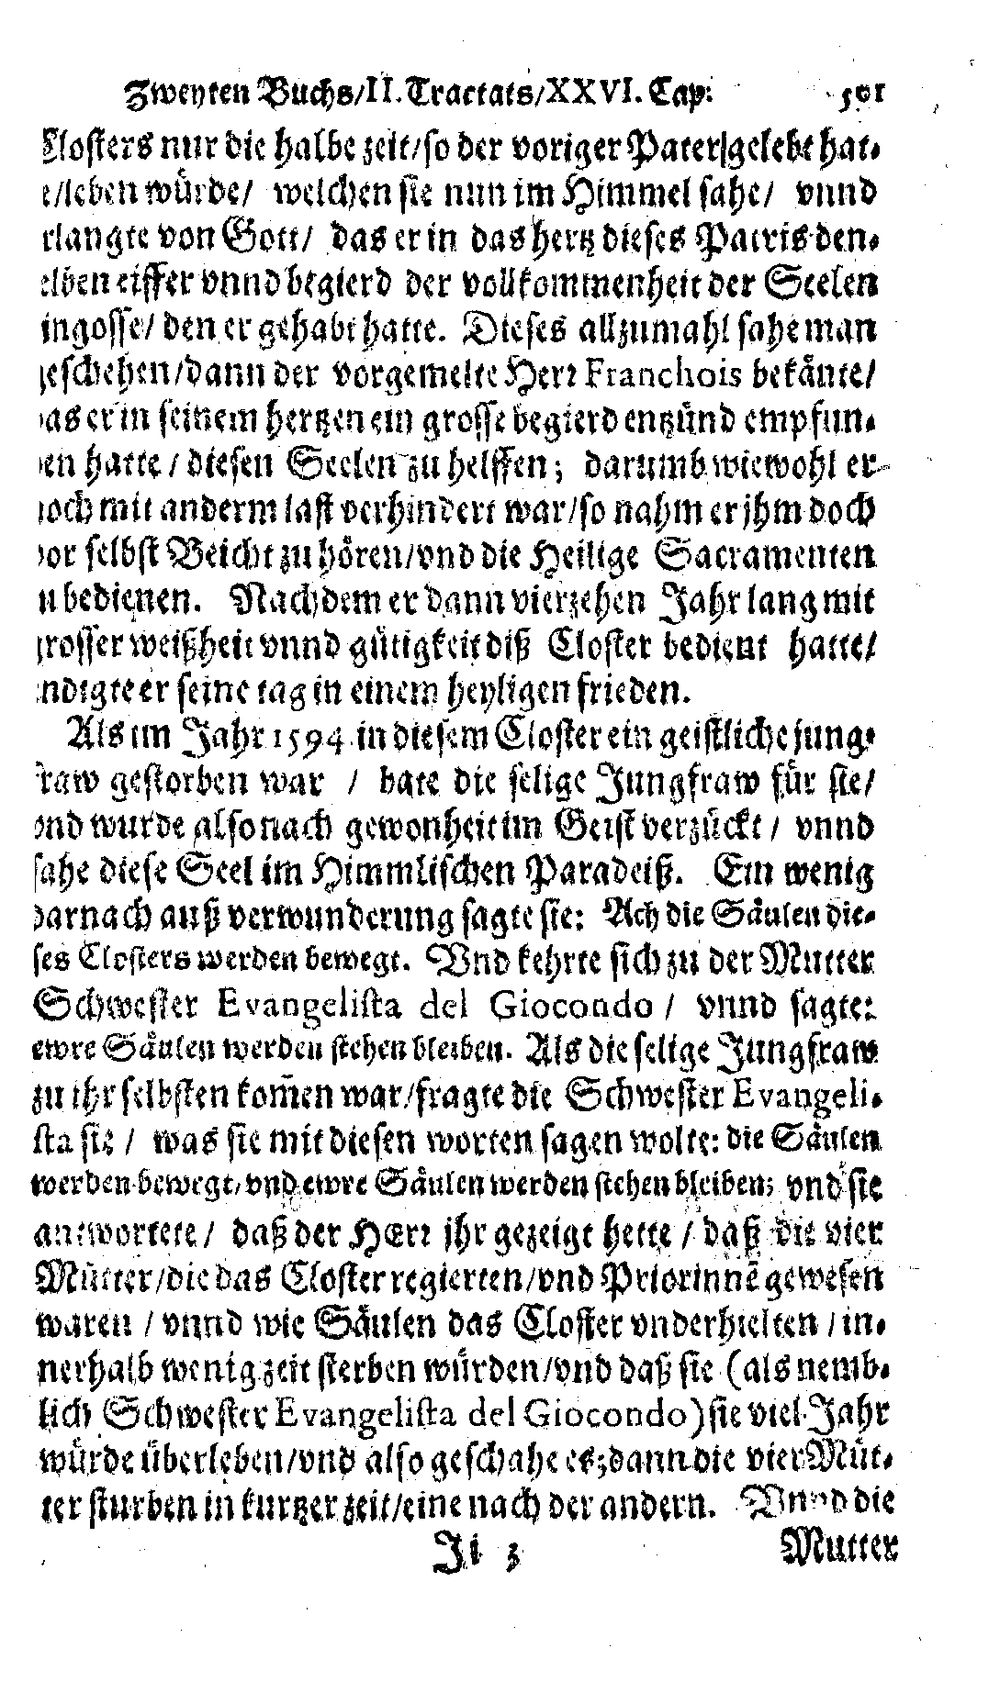 Zweyten Buchs/II. Tractats/XXVI. Cap: 501
Closters nur die halbe zeit/so der voriger Pater gelebt hat-
e/leben würde/ welchen sie nun im Himmel sahe/ vnnd
rlangte von Gott/ das er in das hertz dieses Patris den-
elben eiffer vnnd begierd der vollkommenheit der Seelen
ingosse/ den er gehabt hatte. Dieses allzumahl sahe man
geschehen/dann der vorgemelte Herr Franchois bekäñte/
das er in seinem hertzen ein grosse begierd entzünd empfun-
den hatte/ diesen Seelen zu helffen; darumb wiewohl er
noch mit anderm last verhindert war/so nahm er jhm doch
vor selbst Beicht zu hören/vnd die Heilige Sacramenten
u bedienen. Nachdem er dann vierzehen Jahr lang mit
grosser weißheit vnnd gütigkeit diß Closter bedient hatte/
endigte er seine tag in einem heyligen frieden.
Als im Jahr 1594. in diesem Closter ein geistliche jung-
fraw gestorben war / bate die selige Jungfraw für sie/
vnd wurde also nach gewonheit im Geist verzückt/ vnnd
sahe diese Seel im Himmlischen Paradeiß. Ein wenig
darnach auß verwunderung sagte sie: Ach die Säulen die-
ses Closters werden bewegt. Vnd kehrte sich zu der Mutter
Schwester Evangelista del Giocondo/ vnnd sagte:
ewre Säulen werden stehen bleiben. Als die selige Jungfraw
zu ihr selbsten kom̃en war/fragte die Schwester Evangeli-
sta sie / was sie mit diesen worten sagen wolte: die Säulen
werden bewegt, vnd ewre Säulen werden stehen bleiben; vnd sie
antwortete/ daß der HErr jhr gezeigt hette / daß die vier
Mütter/die das Closter regierten/vnd Priorinnē gewesen
waren / vnnd wie Säulen das Closter vnderhielten / in-
nerhalb wenig zeit sterben würden/vnd daß sie (als nemb-
lich Schwester Evangelista del Giocondo) sie viel Jahr
würde überleben/vnd also geschahe es; dann die vier Müt-
ter sturben in kurtzer zeit/eine nach der andern. Vnnd die
Ji 3 Mutter